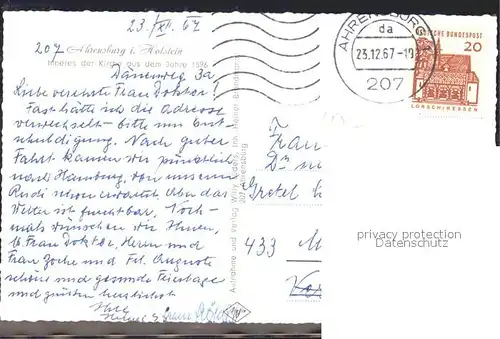 23./XII. 67
207 Ahrensburg i. Holstein
Inneres der Kirche aus dem Jahre 1596
Dänenweg 3a
Liebe verehrte Frau Doktor!
Fast hätte ich die Adresse
verwechselt - bitte um Ent-
schuldigung. Nach guter
Fahrt kamen wir pünktlich
nach Hamburg, von unserem
Rudi schon erwartet. Aber das
Wetter ist furchtbar. Noch-
mals wünschen wir Ihnen,
lb. Frau Doktor, Herrn und
Frau Goche und Frl. Auguste
schöne und gesunde Feiertage
und grüßen herzlichst
Ihre
Aufnahme und Verlag Willy Lüders, Inh. Heiner Brinckmann
207 Ahrensburg
AHRENSBURG
da
23.12.67-19
207
DEUTSCHE BUNDESPOST
20
LORSCH/HESSEN
Frau
Dr
Gretel
433 M
privacy protection
Datenschutz